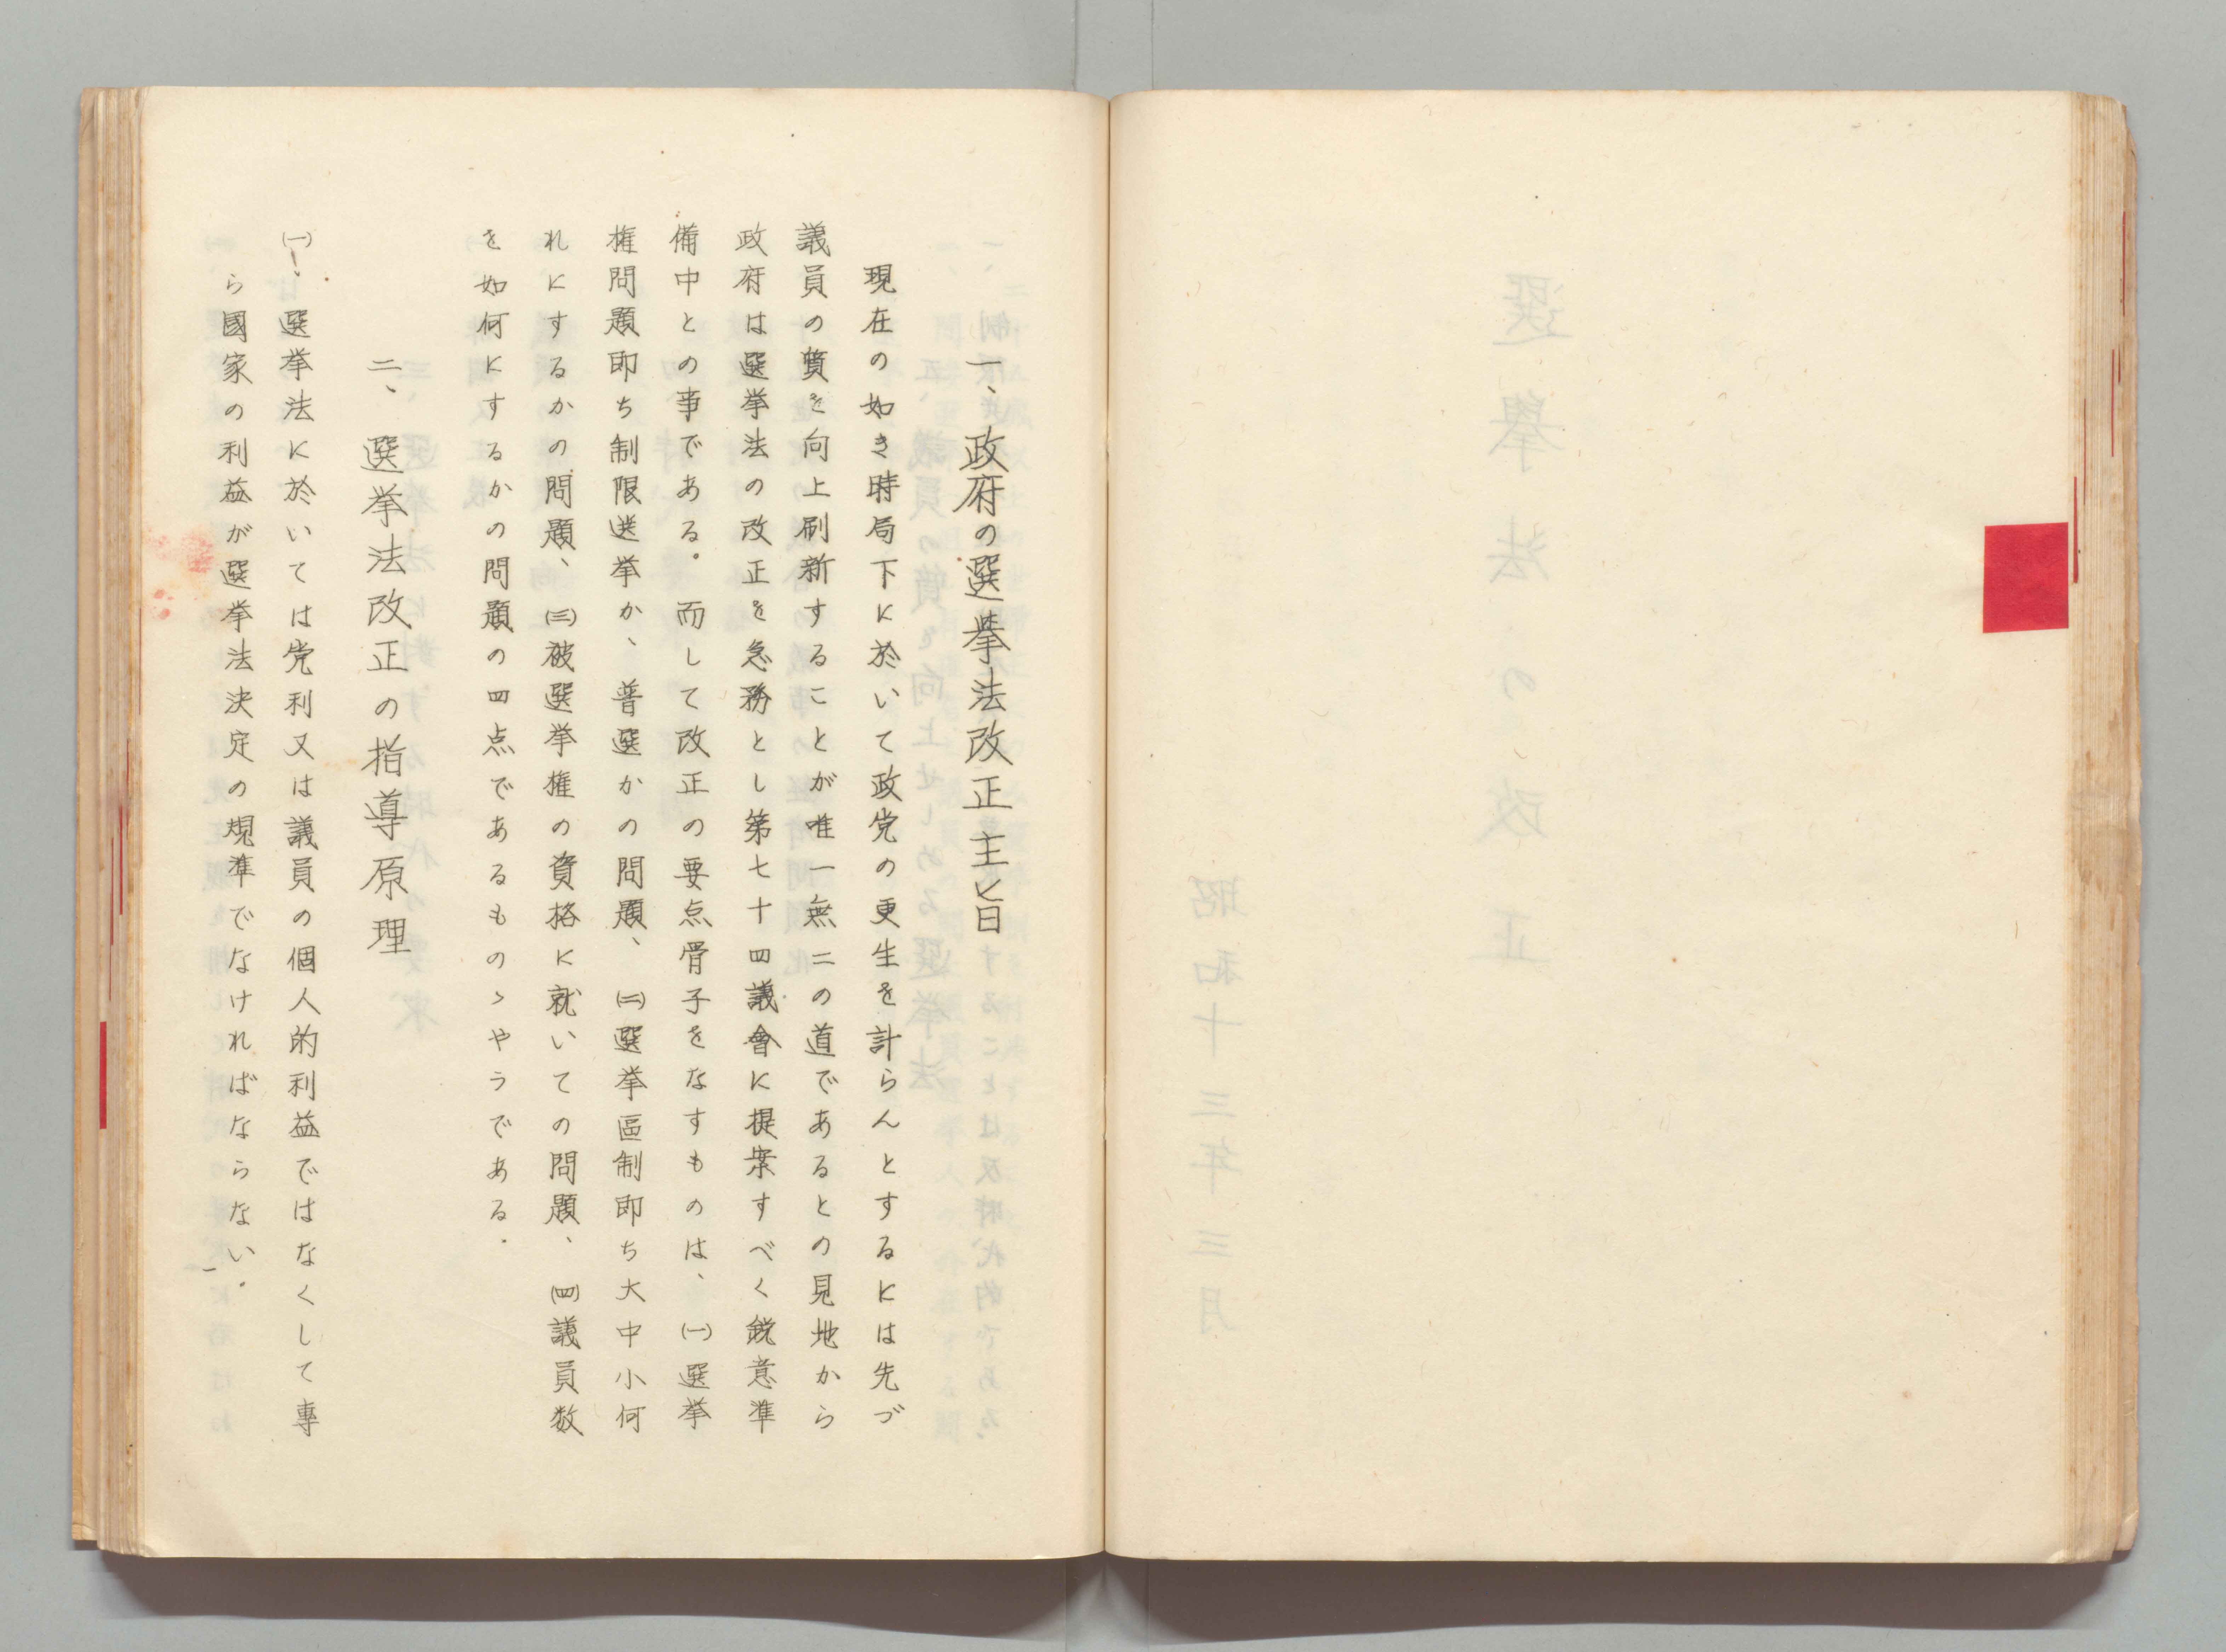 一、政府の選挙法改正主旨
現在の如き時局下に於いて政党の更生を計らんとするには先づ
議員の質を向上刷新することが唯一無二の道であるとの見地から
政府は選挙法の改正を急務とし第七十四議會に提案すべく鋭意準
備中との事である。而して改正の要点骨子をなすものは、㈠選挙
権問題即ち制限選挙か、普選かの問題、㈡選挙區制即ち大中小何
れにするかの問題、㈢被選挙権の資格に就いての問題、㈣議員数
を如何にするかの問題の四点であるものゝやうである.
二、選挙法改正の指導原理
㈠、選挙法に於いては党利又は議員の個人的利益ではなくして專
ら國家の利益が選挙法決定の規準でなければならない.
一
選擧法の改正
昭和十三年三月